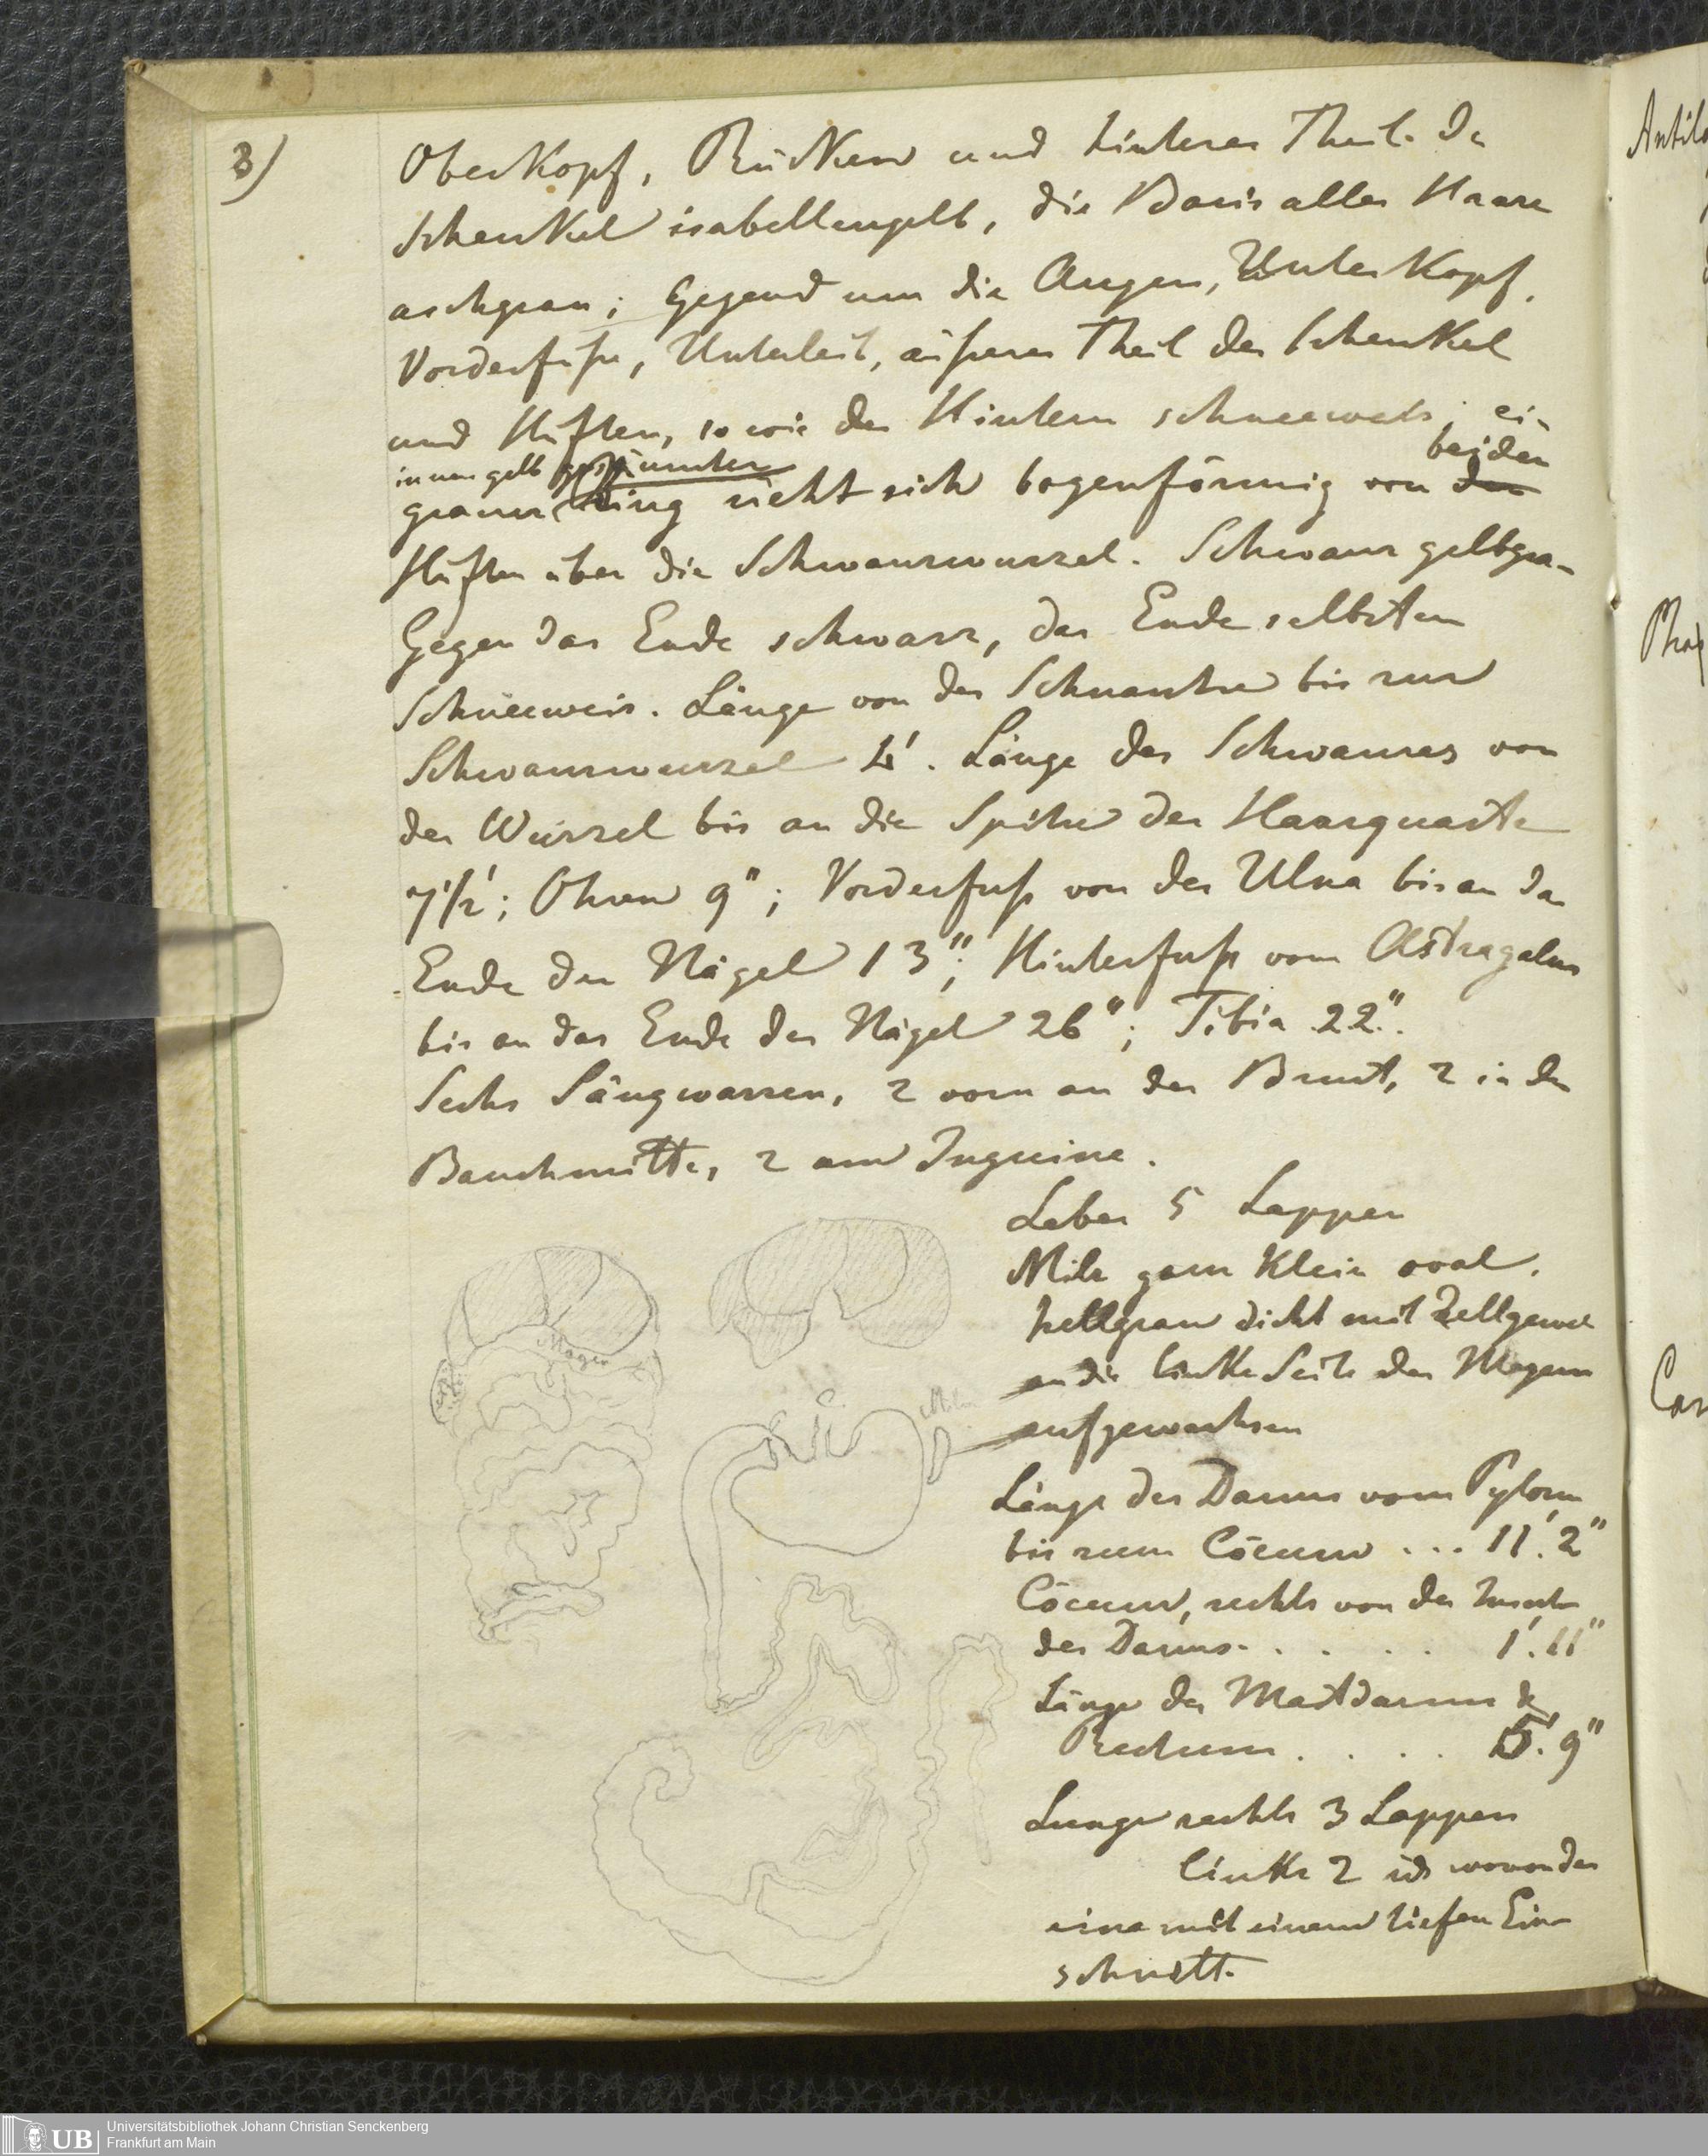 3)
Oberkopf, Rücken und hinterer Theil de
Schenkel isabellengelb, die Basis aller Haare
aschgrau; Gegend um die Augen, Unterkopf,
Vorderfüße, Unterleib, äußerer Theil der Schenkel
und Hüften, so wie der Hintern schneeweis; ei-
innen gelb gesäumter
beiden
grauer Ring zieht sich bogenförmig von den
Hüften über die Schwanzwurzel. Schwanz gelbgra-
Gegen das Ende schwarz, das Ende selbsten
Schneeweis. Länge von der Schnautze bis zur
Schwanzwurzel 4'. Länge des Schwanzes von
der Wurzel bis an die Spitze der Haarquaste
7 1/2'; Ohren 9"; Vorderfuß von der Ulna bis an da
Ende der Nägel 13"; Hinterfuß vom Astragalus
bis an das Ende der Nägel 26"; Tibia 22".
Sechs Säugwarzen, 2 vorn an der Brust, 2 in de
Bauchmitte, 2 am Inguine.
Leber 5 Lappen
Milz ganz klein oval,
hellgrau dicht mit Zellgewe
an die linke Seite des Magens
aufgewachsen
Länge des Darms vom Pylorus
bis zum Cöcum ... 11'. 2"
Cöcum, rechts von der Insert
des Darms . . . . . 1'. 11"
Länge des Mastdarms &
Rectum . . . . 5'. 9"
Lunge rechts 3 Lappen
links 2 wovon der
eine mit einem tiefen Ein-
schnitt.
Magen
Milz
Antilo
Phas
Can
UB
Universitätsbibliothek Johann Christian Senckenberg
Frankfurt am Main